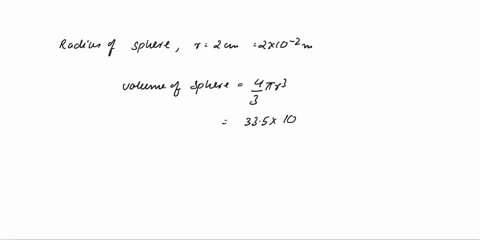 Radius of sphere, r = 2 cm = 2×10⁻² m
volume of sphere = 4/3 πr³
= 33.5 × 10